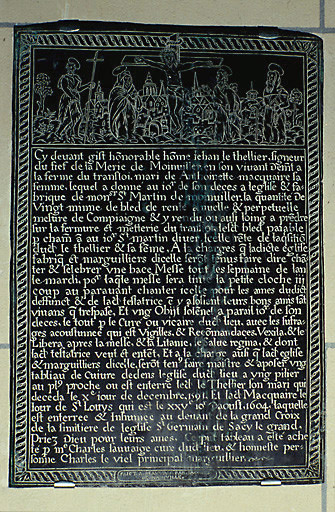 Cy deuant gist hõnorable hõme Iehan le thellier, signeur
du fief de la Merie de Moinuiller en son viuant demt a
la ferme du transloi, mari de Anthoinette macquaire sa
femme, lequel a donne au io.r de son deces a leglise & fa-
brique de mons.r S.t Martin de moinuiller, la quantite de
Vingt mine de bled de rente anuelle & perpetuelle
mesure de Compiaigne & y rendu ou aussi loing a prẽdre
sur la fermure et metterie du transloi lesdt bled paiable
p chaun ã au io.r S.t martin diuer icelle rẽte de laditte
duct le thellier & sa fẽme. A la charges q̃ ladicte eglise
fabriq et marguilliers dicelle serõt tenus faire dire chã-
ter & selebrer vne bace Messe tout les sepmaine de lan
le mardi, po.r laq̃lle messe sera tinte la petite cloche iii
coup au parauant chanter icelle pour les ames dudict
deffunct & de lad testatrice q y assistent leurs bons amis tãt
viuans q̃ trespase, Et vng Obijt solẽnel a parail io.r de son
deces, le tout p le Cure ou vicaire duct lieu, auec les suffra-
ges acoustumee qui est Vigilles, & Recõmandaces, Vexila, & le
Libera apres la messe, & la Litanie, le salue regina, & dont
lad testatrice veut et entẽt, Et a la charge aussi q̃ lad eglise
& marguilliers dicelle, serõt ten.s faire mettre & aposer vng
tablau de Cuiure dedens leglise duct lieu a vng pilier
au pl.9 proche ou est enterre led le Thellier son mari qui
deceda le x.e iour de decembre, 1591. Et lad Macquaire le
Iour de S.t Loiys qui est le xxv io.r daoust, 1604, laquelle
est enterree & Inhumee au deuant de la grand Croix
de la simitiere de leglise S.t Germain de Sacy le grand.
Priez Dieu pour leurs ames. Ce pnt tableau a este achete
p m.e Charles sauuaige cure duct lieu, & honneste per-
sonne Charles le viel principal marguillier.